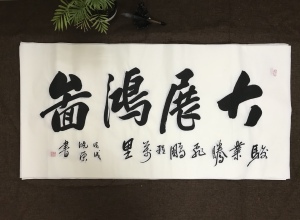 大展鴻圖
駿業騰飛鵬程萬里
戊戌
書